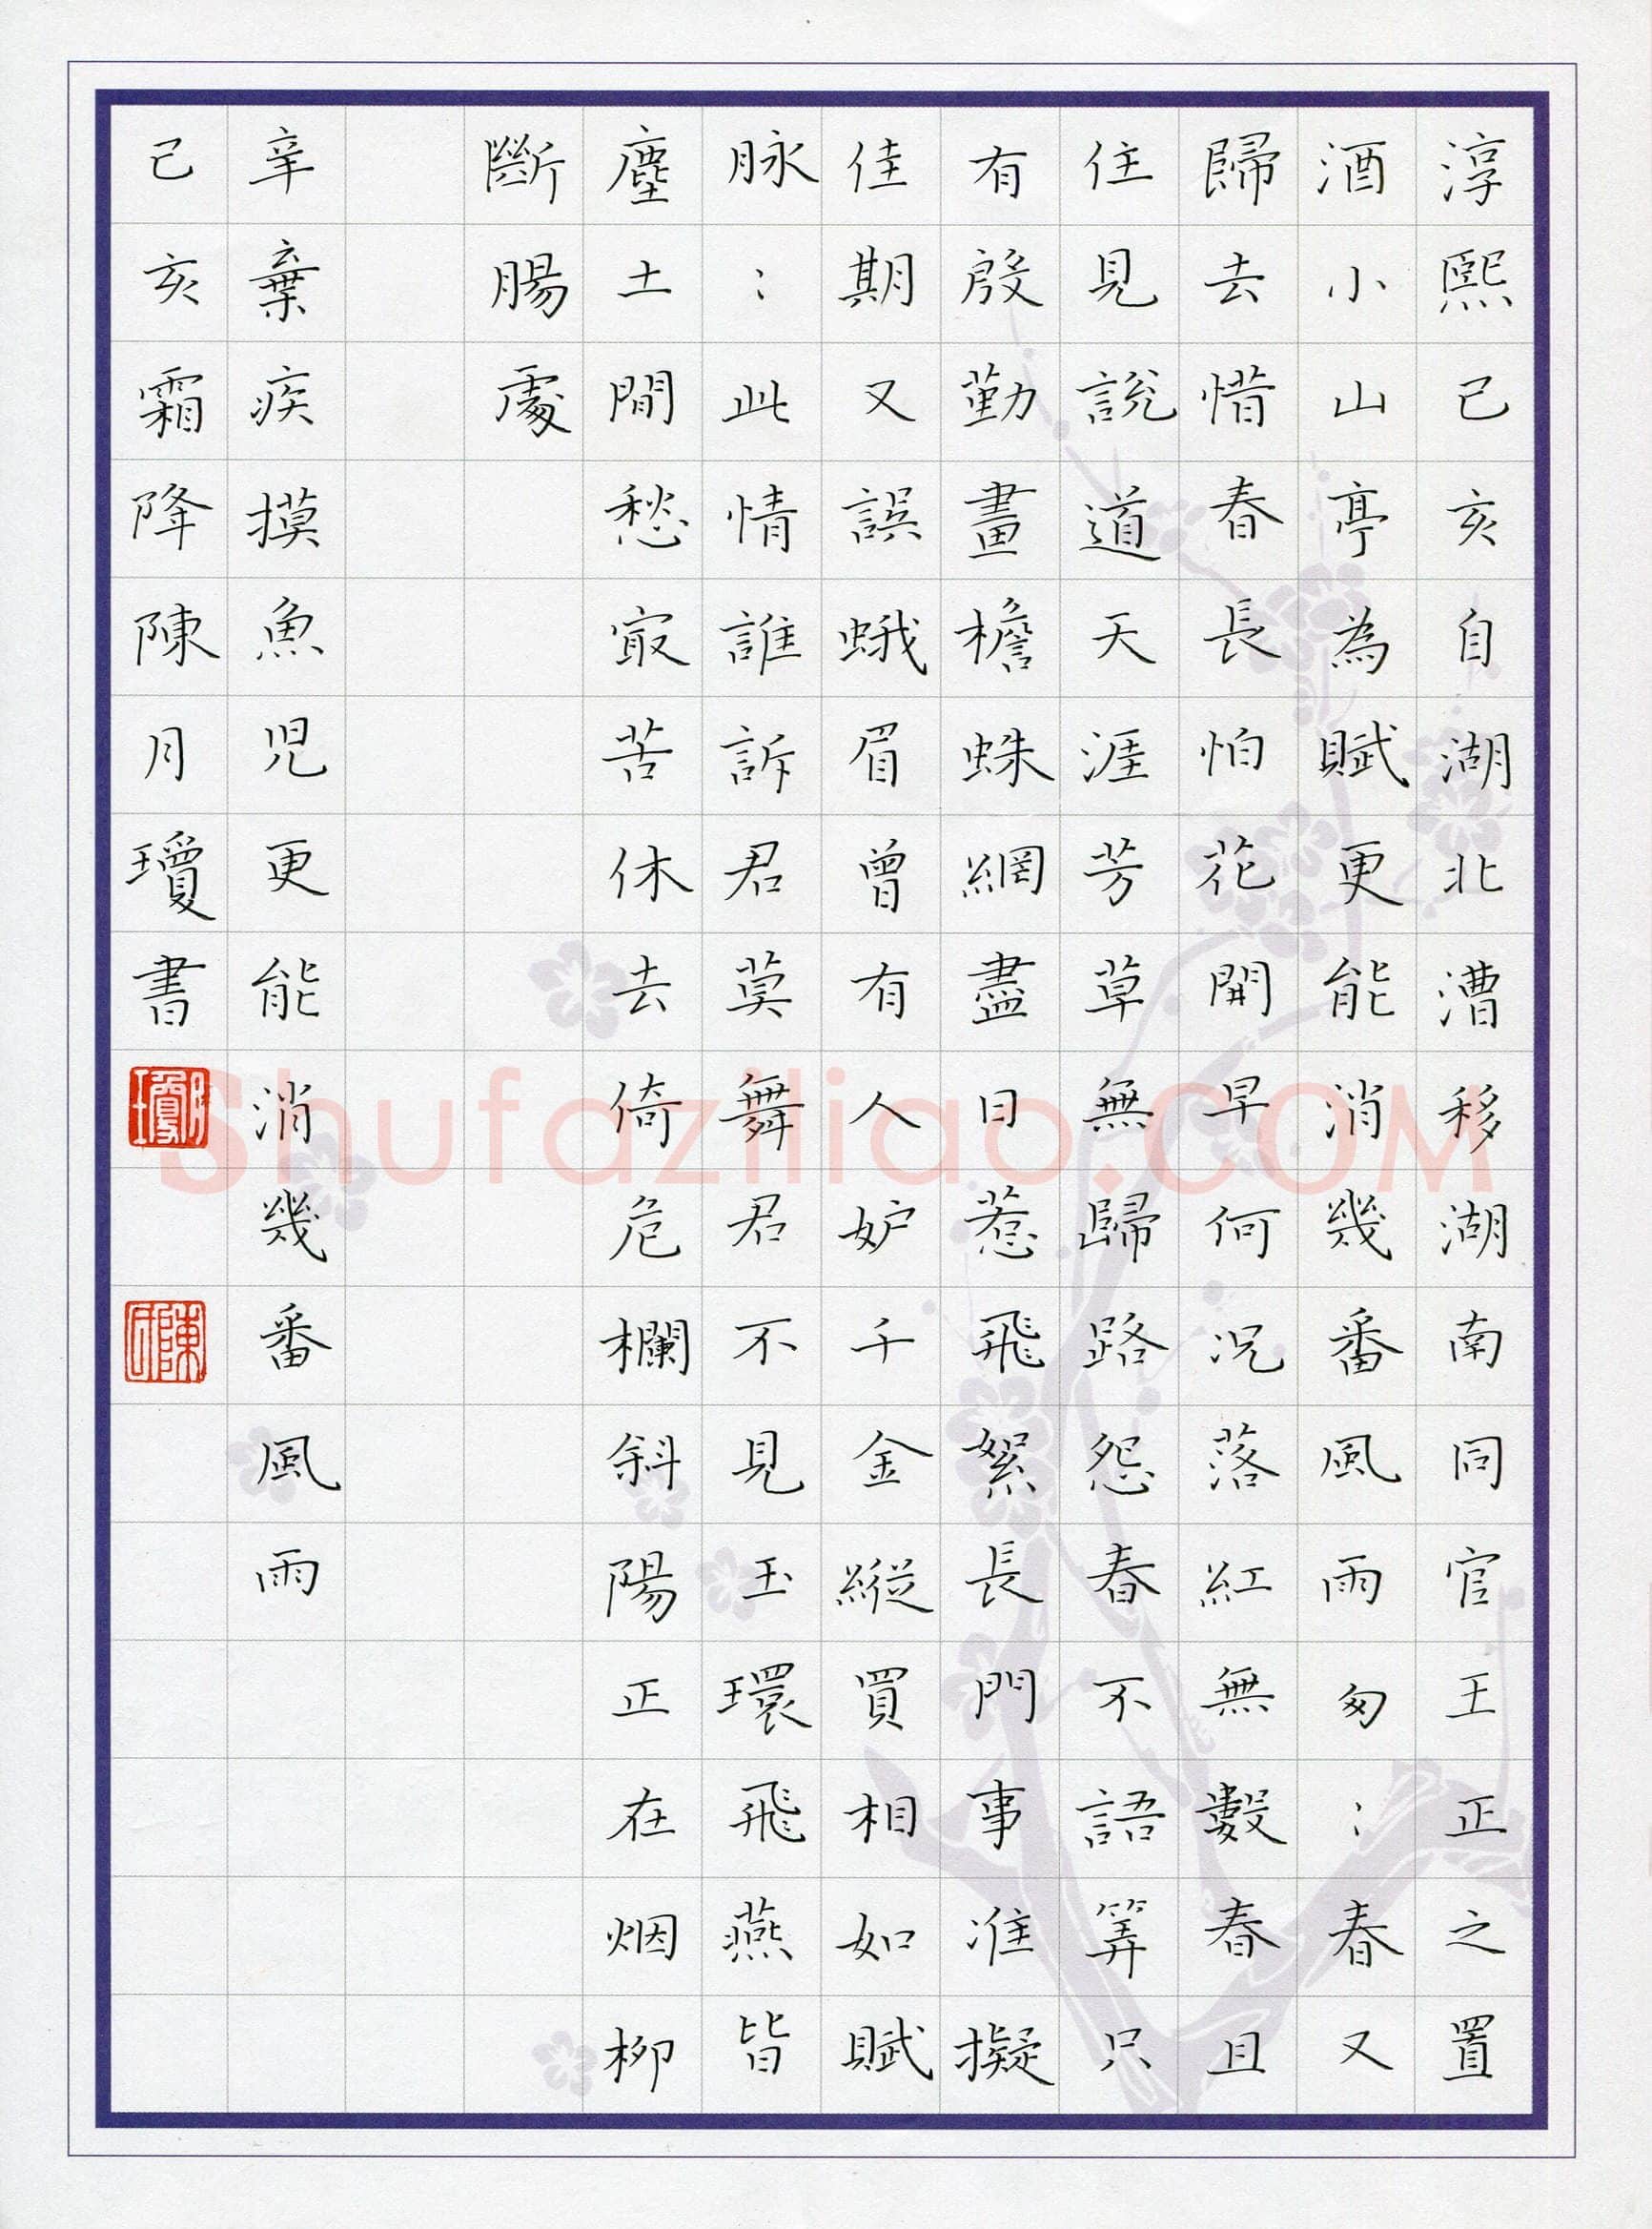 淳熙己亥自湖北漕移湖南同官王正之置
酒小山亭為賦更能消幾番風雨匆：春又
歸去惜春長怕花開早何況落紅無數春且
住見說道天涯芳草無歸路怨春不語算只
有殷勤畫檐蛛網盡日惹飛絮長門事准擬
佳期又誤蛾眉曾有人妒千金縱買相如賦
脉：此情誰訴君莫舞君不見玉環飛燕皆
塵土閒愁最苦休去倚危欄斜陽正在烟柳
斷腸處
辛棄疾摸魚児更能消幾番風雨
己亥霜降陳月瓊書
Shufaziliao.COM